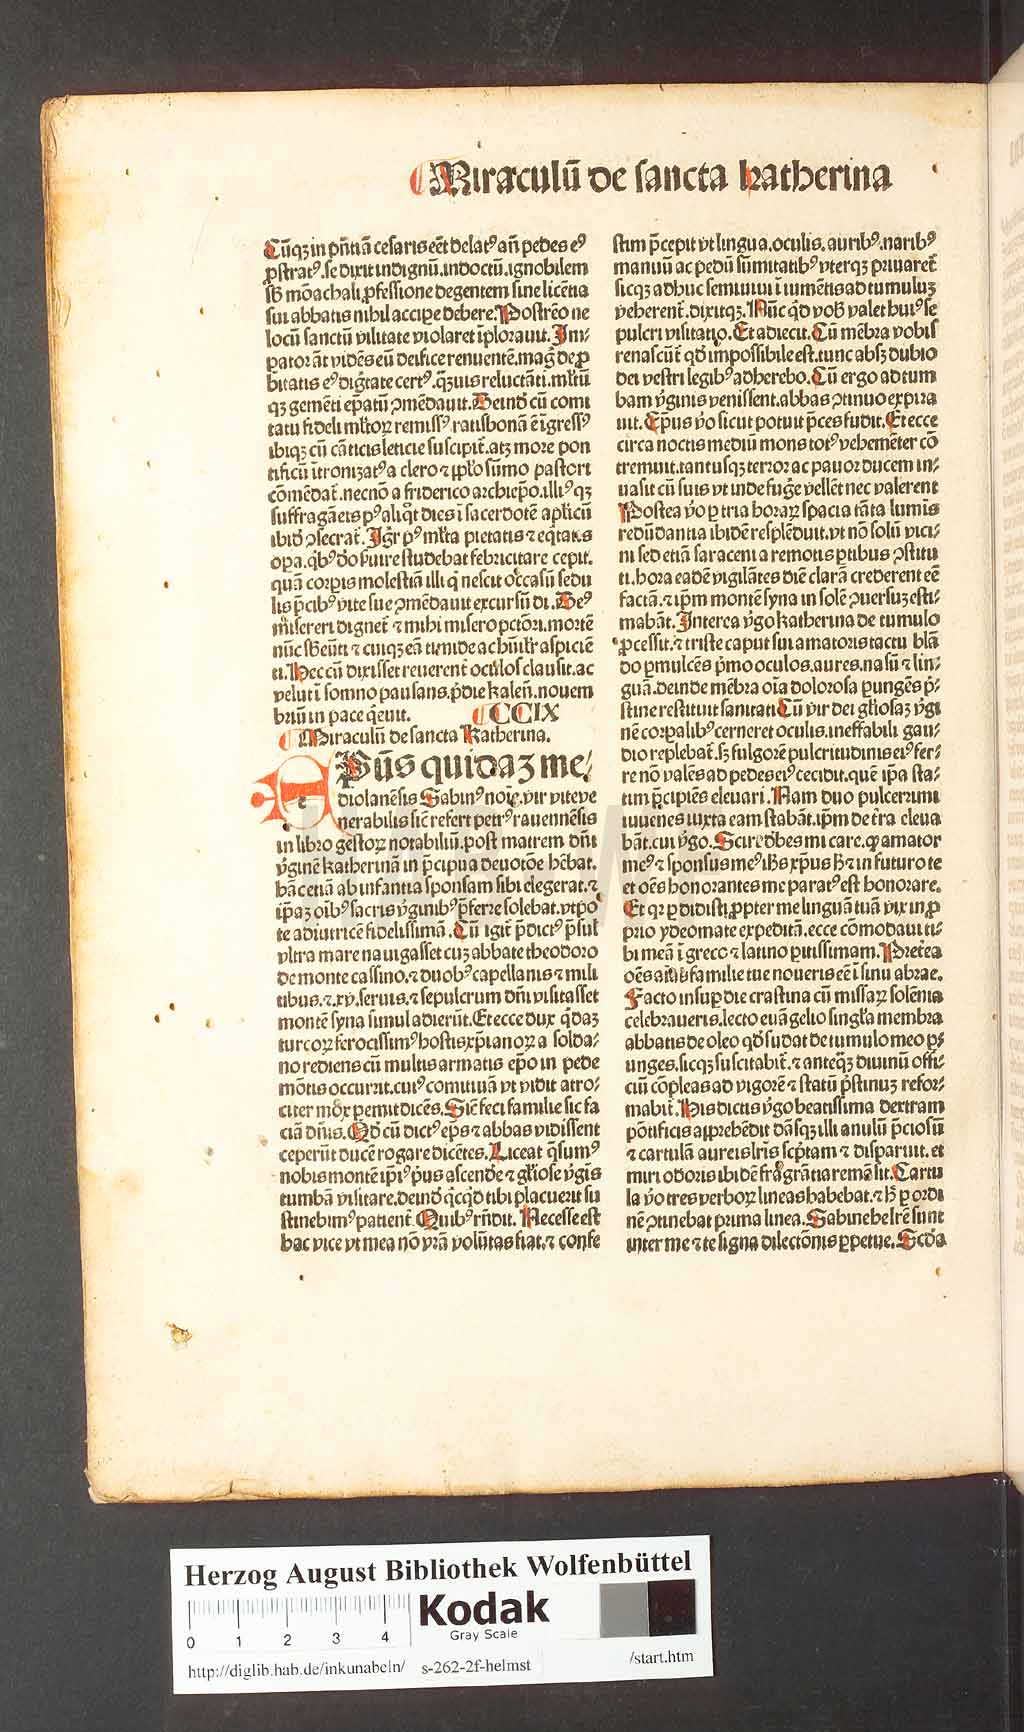 Miraculū de sancta katherina
Cūqꝫ in pn̄tiā cesaris eēt delatꝰ añ pedes eꝰ
ꝓstratꝰ. se dixit indignū. indoctū. ignobilem
sꝫ mōachali ꝓfessione degentem sine licētia
sui abbatis nihil accipe debere. Postrēo ne
locū sanctū vilitate violaret īplorauit. Im-
pator āt vidēs eū deifice renuentē. magꝭ de ꝓ
bitatis eꝰ digtate certꝰ. qͣuis reluctāti. ml̄tū
qꝫ gemēti ep̄atū ↄmēdauit. Deinđ cū comi
tatu fideli ml̄toꝝ remissꝰ. ratisbonā ē īgressꝰ
ibiqꝫ cū cāticis leticie suscipit̄. atqꝫ more pon
tificū ītronizatꝰ a clero ⁊ pplo sūmo pastori
cōmēdat̄. necnō a friderico archiep̄o. illiꝰ qꝫ
suffragāeis pꝰ aliqͦt dies ī sacerdotē aplicū
ibiđ ↄsecrat̄. Igr̄ pꝰ ml̄ta pietatis ⁊ eqͥtatis
opa. qͥbꝰ dō ẜuire studebat febricitare cepit.
quā corpis molestiā illi qͥ nescit occasū sedu
lis p̄cibꝰ vite sue ↄmēdauit excursū di. Deꝰ
misereri dignet̄ ⁊ mihi misero pctōri. mortē
nūc sbeūti ⁊ cuiqꝫ eā timide ac hūilīr aspiciē
ti. Hec cū dixisset reuerent̄ oculos clausit. ac
velut ī somno pausans. p̄die kaleñ. nouem
briū in pace qͥeuit. CCIX
Miraculū de sancta Katherina.
EPūs quidaꝫ me-
diolanēsis Sabinꝰ noīe. vir vite ve
nerabilis sic̄ refert petrꝰ rauennēsis
in libro gestoꝝ notabiliū. post matrem dn̄i
v̓ginē katherinā in p̄cipua deuotōe hēbat.
hāc etiā ab infantia sponsam sibi elegerat. ⁊
ip̄aꝫ oībꝰ sacris v̓ginibꝰ p̄ferre solebat. vtpo
te adiutricē fidelissimā. Cū igit̄ p̄dictꝰ p̄sul
vltra mare nauigasset cuꝫ abbate theodoro
de monte cassino. ⁊ duobꝰ capellanis ⁊ mili
tibus. ⁊. xv. seruis. ⁊ sepulcrum dn̄i visitasset
montē syna simul adierūt. Et ecce dux qͥdaꝫ
turcoꝝ ferocissimꝰ hostis xp̄ianoꝝ a solda-
no rediens cū multis armatis ep̄o in pede
mōtis occurrit. cuiꝰ comitiuā vt vidit atro-
citer mox pemit dicēs. Sic̄ feci familie sic fa
ciā dn̄is. Qđ cū dictꝰ ep̄s ⁊ abbas vidissent
ceperūt ducē rogare dicētes. Liceat qͣsumꝰ
nobis montē ip̄i pͥus ascendē ⁊ gl̄iose v̓gis
tumbā visitare. deinđ qͥcqͥd tibi placuerit su
stinebimꝰ patient̄. Quibꝰ rn̄dit. Necesse est
hac vice vt mea nō vr̄a volūtas fiat. ⁊ confe
stim p̄cepit vt lingua. oculis. auribꝰ. naribꝰ
manuū ac pedū sūmitatibꝰ vterqꝫ priuaret̄
sicqꝫ adhuc semiuiui ī iumētis ad tumuluꝫ
veherent̄. dixitqꝫ. Nūc qͥd vob̄ valet huiꝰ se
pulcri visitatio. Et adiecit. Cū mēbra vobis
renascūt̄ qđ impossibile est. tunc absqꝫ dubio
dei vestri legibꝰ adherebo. Cū ergo ad tum
bam v̓ginis venissent. abbas ↄtinuo expira
uit. Ep̄us v̓o sicut potuit p̄ces fudit. Et ecce
circa noctis mediū mons totꝰ vehemēter cō
tremuit. tantusqꝫ terror ac pauor ducem in-
uasit cū suis vt inde fuge̓ vellēt nec valerent
Postea v̓o p tria horaꝝ spacia tāta luminis
redūdantia ibidē resplēduit. vt nō solū vici-
ni sed etiā saraceni a remotis ptibus ↄstitu
ti. hora eadē vigilātes diē clarā crederent eē
factā. ⁊ ip̄m montē syna in solē ↄuersuꝫ esti-
mabāt. Interea v̓go katherina de tumulo
ꝓcessit. ⁊ triste caput sui amatoris tactu blā
do pmulcēs pͥmo oculos. aures. nasū ⁊ lin-
guā. deinde mēbra oīa dolorosa pungēs pͥ-
stine restituit sanitati. Cū vir dei gl̄iosaꝫ v̓gi
nē corpalibꝰ cerneret oculis. ineffabili gau-
dio replebat̄. sꝫ fulgorē pulcritudinis eiꝰ fer-
re nō valēs ad pedes eiꝰ cecidit. quē ip̄a sta-
tim p̄cipiēs eleuari. Nam duo pulcerrimi
iuuenes iuxta eam stabāt. ip̄m de tr̄a eleua
bāt. cui v̓go. Scire dꝫes mi care. qꝫ amator
meꝰ ⁊ sponsus meꝰ ihs xp̄us hͨ ⁊ in futuro te
et oēs honorantes me paratꝰ est honorare.
Et qꝛ pdidisti ꝓpter me linguā tuā vix in ꝓ
prio ydeomate expeditā. ecce cōmodaui ti-
bi meā ī greco ⁊ latino pitissimam. Pret̓ea
oēs aīas familie tue noueris eē ī sinu abrae.
Facto insup die crastina cū missaꝝ solēnia
celebraueris. lecto euāgelio singl̄a membra
abbatis de oleo qđ sudat de tumulo meo p-
unges. sicqꝫ suscitabit̄. ⁊ anteqͣꝫ diuinū offi-
ciū cōpleas ad vigorē ⁊ statū pͥstinuꝫ refor-
mabit̄. His dictis v̓go beatissima dextram
pōtificis apprehēdit dāsqꝫ illi anulū p̄ciosū
⁊ cartulā aureis lr̄is scptam ⁊ disparuit. et
miri odoris ibidē fragrātia remāsit. Cartu
la v̓o tres verboꝝ lineas habebat. ⁊ hͨ p ordi
nē ↄtinebat prima linea. Sabine hel̄rē sunt
inter me ⁊ te signa dilectōnis ppetue. Scđa
Herzog August Bibliothek Wolfenbüttel
0 1 2 3 4
Kodak
Gray Scale
http://diglib.hab.de/inkunabeln/ s-262-2f-helmst /start.htm